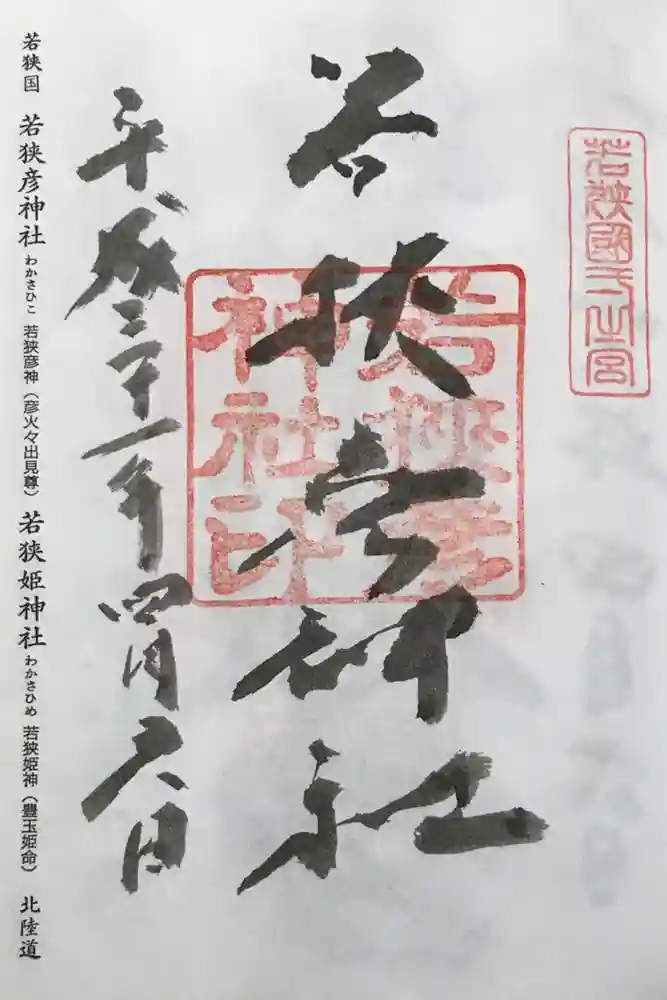 若狭國一之宮
若狭彦神社
若狭彦
神社印
平成三十一年四月六日
若狭国 若狭彦神社 わかさひこ 若狭彦神（彦火々出見尊） 若狭姫神社 わかさひめ 若狭姫神（豐玉姫命） 北陸道